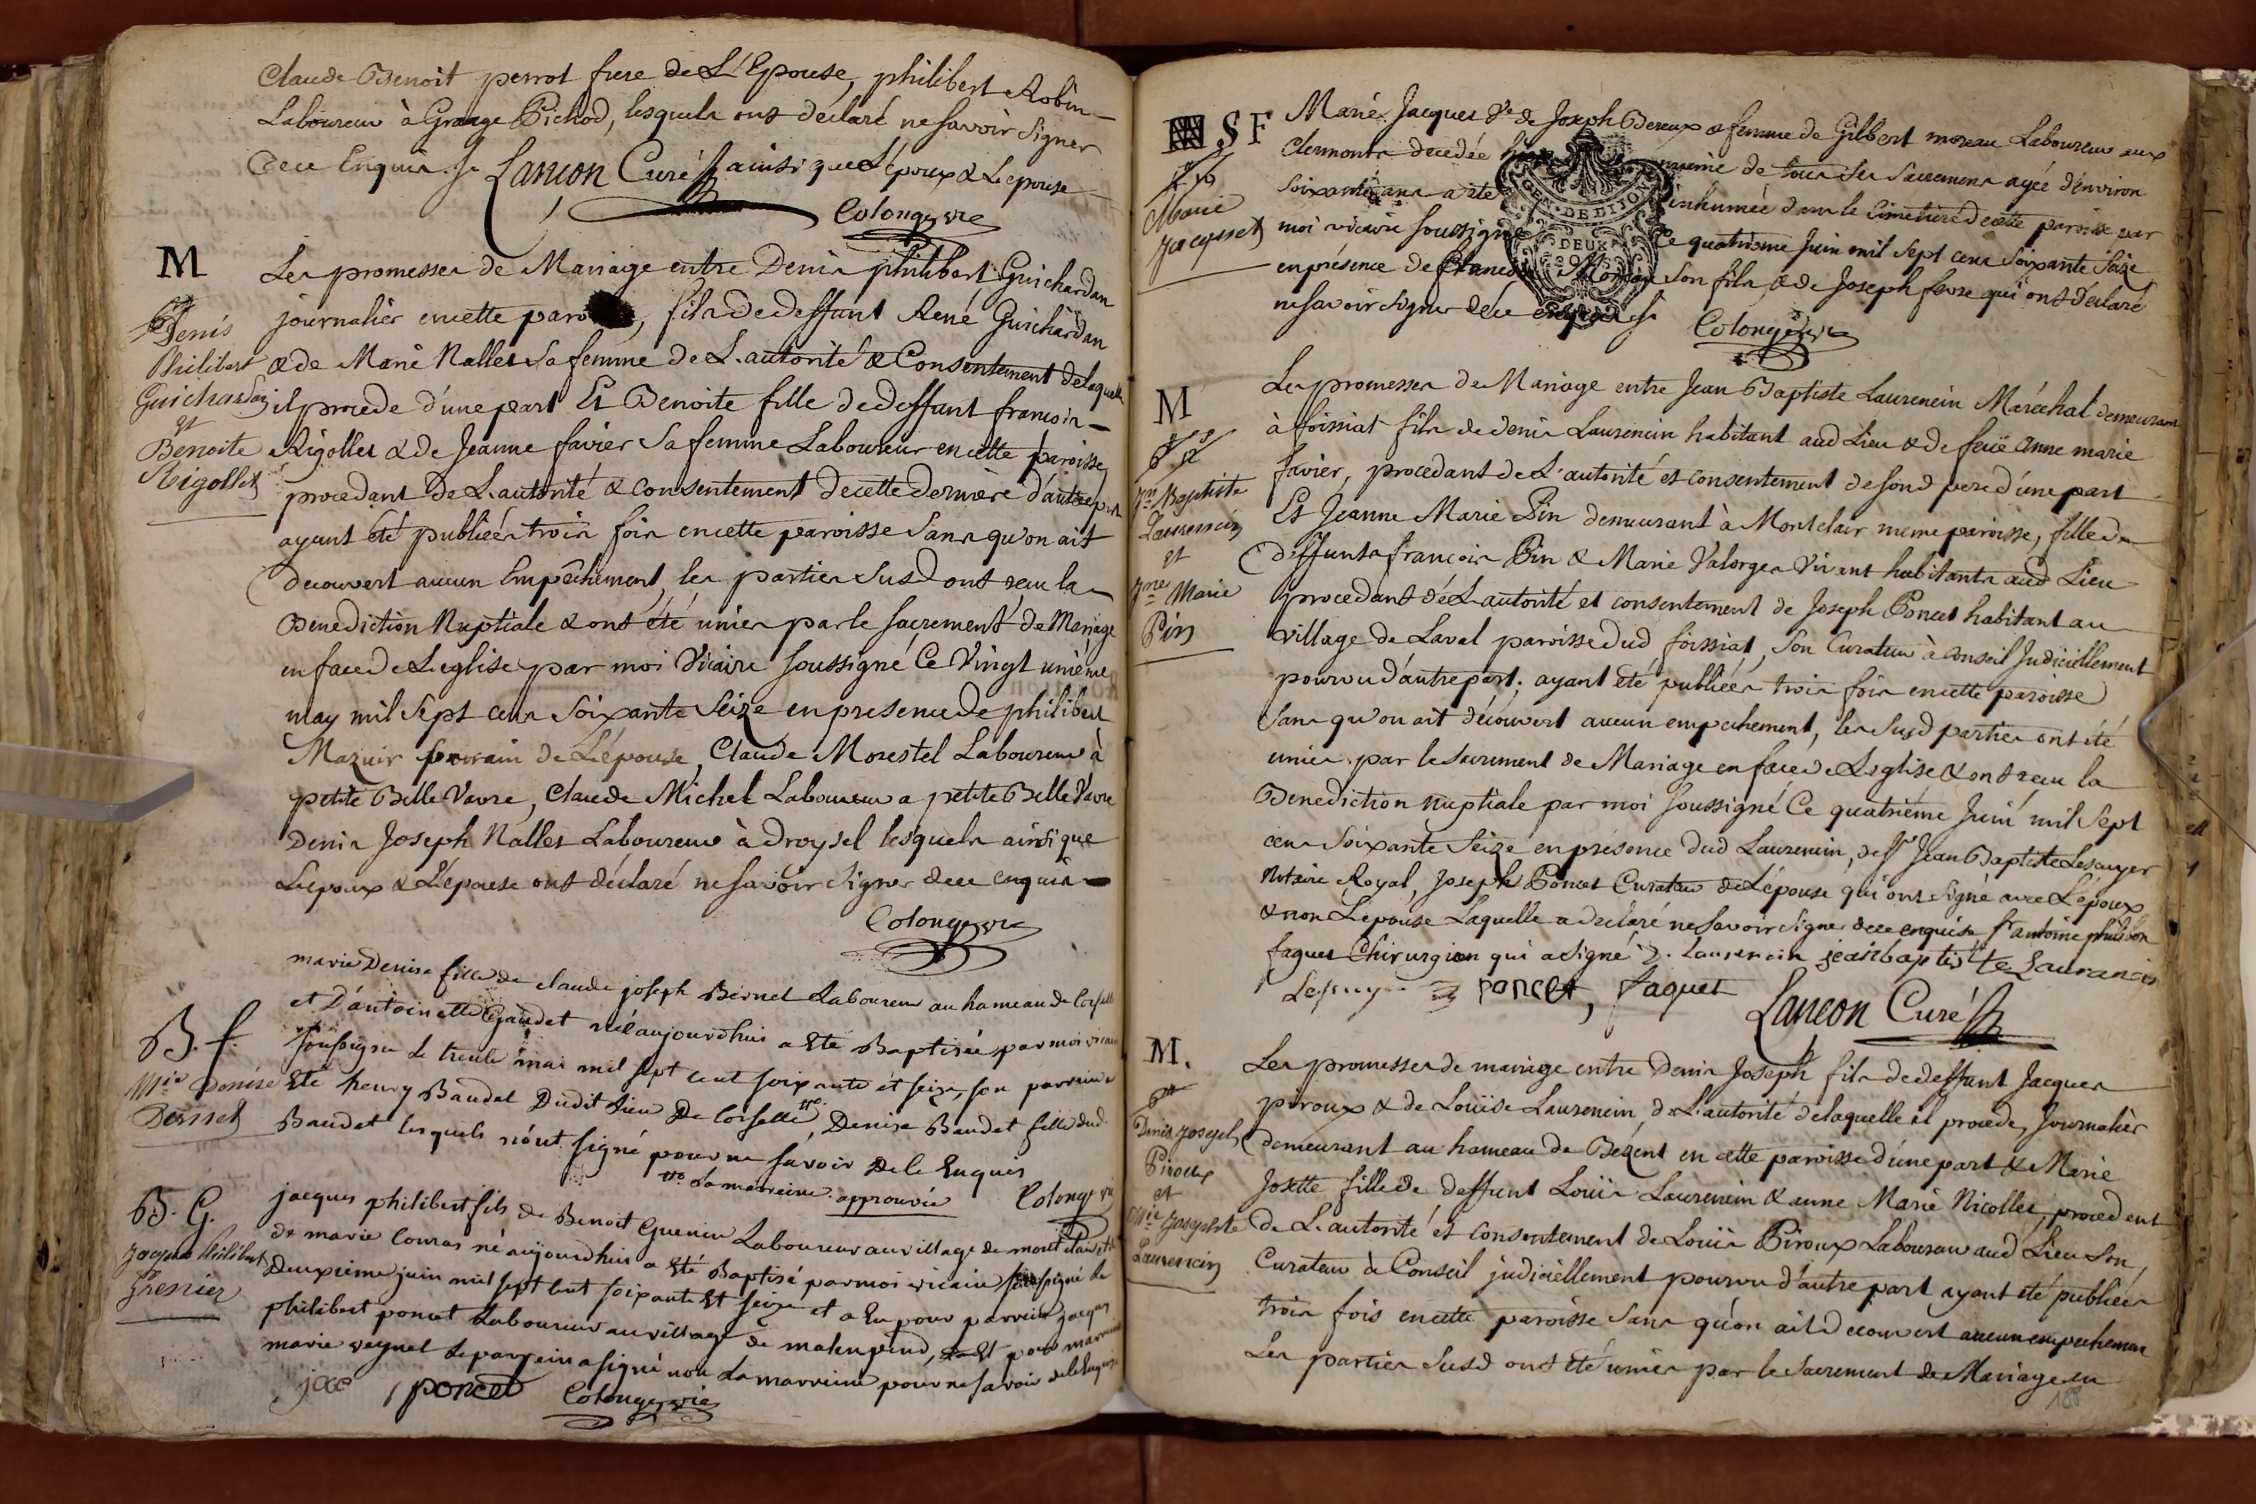 Claude Benoit perrot frere de L'Epouse, philibert Robin
Laboureur à Grange Pichod, lesquels ont déclaré ne savoir signer
de ce Enquis. Lancon Curé ainsi que L'époux & L'epouse
Colonge vre
M
Denis
Philibert
Guichardan
et
Benoite
Rigollet
Les promesses de Mariage entre Denis philibert Guichardan
journalier en cette paro , fils de deffunt René Guichardan
& de Marie Nallet sa femme de L'autorité & Consentement de laquelle
il procede d'une part Et Benoite fille de deffunt francois
Rigollet & de Jeanne favier sa femme Laboureur en cette paroisse
procedant de L'autorité & consentement de cette derniere d'autre part
ayant été publiées trois fois en cette paroisse sans qu'on ait
decouvert aucun Empêchement, les parties susd ont recu la
Benediction Nuptiale & ont été unies par le sacrement de Mariage
en face de L'eglise par moi Vicaire soussigné Ce Vingt unième
may mil sept cens soixante seize en presence de philibert
Mazuir parrain de L'épouse, Claude Morestel Laboureur à
petite Belle Vavre, Claude Michel Laboureur a petite Belle Vavre
Denis Joseph Nallet Laboureur à Droysel lesquels ainsi que
L'epoux & L'épouse ont déclaré ne savoir signer de ce enquis
Colonge vre
B. f.
Mie Denise
Bernet
marie Denise fille de claude joseph Bernet Laboureur au hameau de Corselle
et D'antoinette Gaudet née aujourdhui a Eté Baptisée par moi vicaire
soussigné le trente mai mil sept cent soixante et seize, son parrain a
Eté henry Baudet Dudit Lieu De Corselle, Denise Baudet fille dud.
Baudet lesquels n'ont signé pour ne savoir De le Enquis
la marreine approuvée Colonge vre
B. G.
Jacques Philibert
Grenier
jacques philibert fils de Benoit Guenier Laboureur au village de mont clair et
de marie Comas né aujourdhui a Eté Baptisé par moi vicaire soussigné le
Deuxieme juin mil sept cent soixante Et seize et a Eu pour parrein jacques
philibert poncet Laboureur au village de , Et pour marreine
marie veynet le parrein a signé non La marreine pour ne savoir de le Enquise
jacques poncet Colonge vie
S F
Marie
Jacquet
Marie Jacquet Ve de Joseph Bereux & femme de Gilbert moreau Laboureur aux
Clermonts decedée hier munie de tous les sacremens agée d'environ
soixante ans a été inhumée dans le cimetière de cette paroisse par
moi vicaire soussigné Ce quatrième Juin mil sept cens soixante seize
en présence de francois Moreau son fils & de Joseph fevre qui ont déclaré
ne savoir signer de ce enquis
Colonge vre
GEN. DE DIJON
DEUX
M
Jn Baptiste
Laurencin
et
Jne Marie
Pin
Les promesses de Mariage entre Jean Baptiste Laurencin Maréchal demeurant
à foissiat fils de denis Laurencin habitant aud Lieu & de feüe anne marie
favier, procedant de L'autorité et consentement de sond pere d'une part
Et Jeanne Marie Pin demeurant à Montclair meme paroisse, fille de
deffunts francois Pin & Marie Valorges Vivant habitants aud Lieu
procedant de L'autorité et consentement de Joseph Poncet habitant au
village de Laval paroisse dud foissiat, son Curateur à conseil Judiciellement
pourvu d'autre part, ayant été publiées trois fois en cette paroisse
sans qu'on ait découvert aucun empechement, les susd parties ont été
unies par le sacrement de Mariage en face de L'eglise & ont recu la
Benediction nuptiale par moi soussigné Ce quatriéme Juin mil sept
cens soixante seize en présence dud Laurencin, de sr Jean Baptiste Lescuyer
Notaire Royal, Joseph Poncet Curateur de L'épouse qui ont signé avec L'époux
& non L'epouse Laquelle a declaré ne savoir signer de ce enquise, sr antoine philibon
faguet Chirurgien qui a signé D. Laurencin jean baptiste Laurancin
Lescuyer poncet, faguet Lancon Curé
M.
Denis Joseph
Piroux
et
Mie Josephte
Laurencin
Les promesses de mariage entre Denis Joseph fils de deffunt Jacques
piroux & de Loüise Laurencin, de L'autorité de laquelle il procede, Journalier
demeurant au hameau de Bezent en cette paroisse d'une part & Marie
Josette fille de deffunt Loüis Laurencin & anne Marie Nicollet, procedent
de L'autorité et consentement de Loüis Piroux Laboureur aud Lieu son
Curateur à Conseil judiciellement pourvu d'autre part ayant été publiées
trois fois en cette paroisse sans qu'on ait decouvert aucun empechement
Les parties susd ont été unies par le sacrement de Mariage en
188